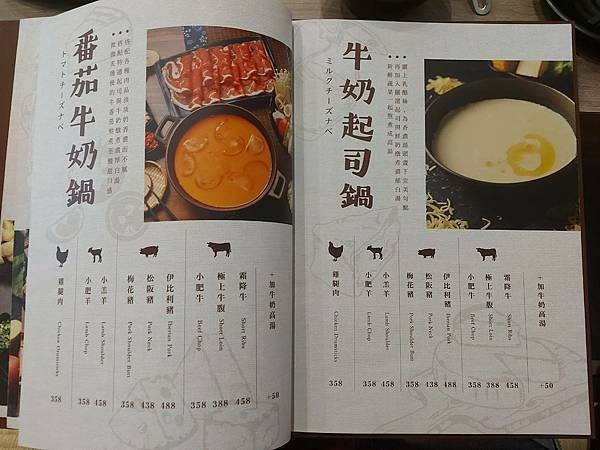 番茄牛奶鍋
トマトチーズナベ
+加牛奶高湯 +50
霜降牛 Short Ribs 458
極上牛腹 Short Loin 388
小肥牛 Beef Chop 358
伊比利豬 Iberian Pork 488
松阪豬 Pork Neck 438
梅花豬 Pork Shoulder Butt 358
小羔羊 Lamb Shoulder 458
小肥羊 Lamb Chop 358
雞腿肉 Chicken Drumsticks 358
牛奶起司鍋
ミルクチーズナベ
+加牛奶高湯 +50
霜降牛 Short Ribs 458
極上牛腹 Short Loin 388
小肥牛 Beef Chop 358
伊比利豬 Iberian Pork 488
松阪豬 Pork Neck 438
梅花豬 Pork Shoulder Butt 358
小羔羊 Lamb Shoulder 458
小肥羊 Lamb Chop 358
雞腿肉 Chicken Drumsticks 358